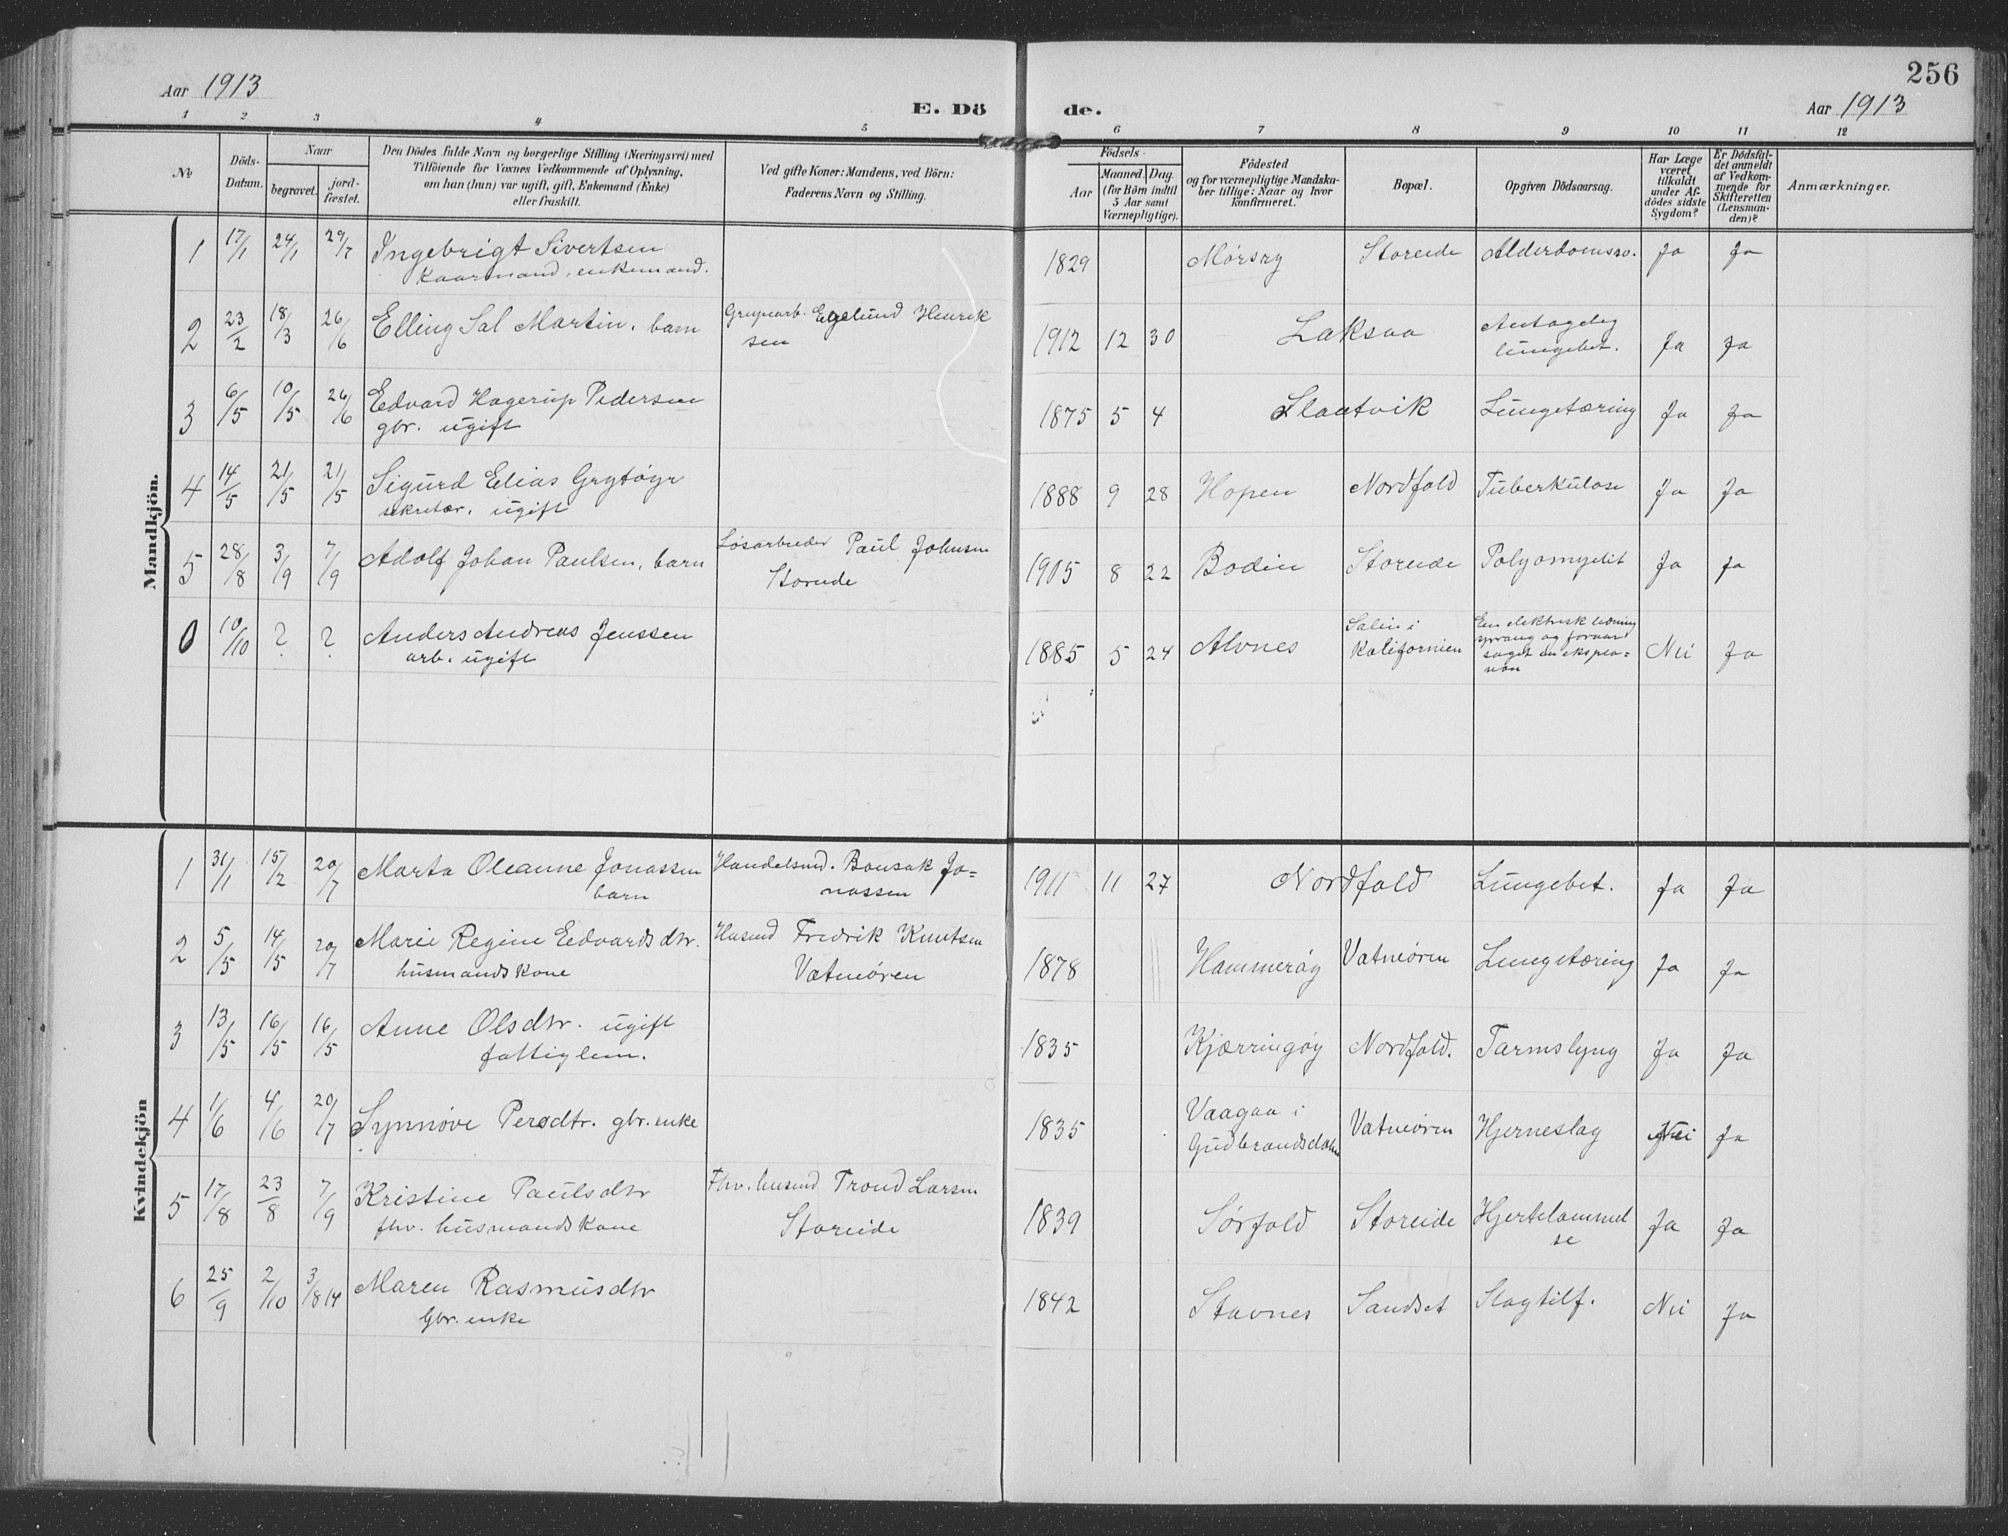 256
Aar 1913
E. Dö
de.
Aar 1913
1 2 3 4 5 6 7 8 9 10 11 12
№
Döds-
Datum.
Naar
begravet.
jord-
fæstet.
Den Dödes fulde Navn og borgerlige Stilling (Næringsvei) med
Tilföiende for Voxnes Vedkommende af Oplysning,
om han (hun) var ugift, gift, Enkemand (Enke)
eller fraskilt.
Ved gifte Koner: Mandens, ved Börn:
Faderens Navn og Stilling.
Födsels-
Aar
Maaned. Dag.
(for Börn indtil
5 Aar samt
Værnepligtige).
Födested
og for værnepligtige Mandska-
ber tillige: Naar og hvor
konfirmeret.
Bopæl.
Opgiven Dödsaarsag.
Har Læge
været
tilkaldt
under Af-
dödes sidste
Sygdom?
Er Dödsfal-
det anmeldt
af Vedkom-
mende for
Skifteretten
(Lensman-
den)?
Anmærkninger.
Mandkjön.
1 17/1 24/1 29/7 Ingebrigt Sivertsen 1829 Mørsry Storeide Alderdomssv. Ja Ja
kaarmand, enkemand.
2 23/2 18/3 26/6 Elling Sal Martin, barn Grubearb. Egelund Henrik 1912 12 30 Laksaa Antagelig Ja Ja
sen lungebet.
3 6/5 10/5 26/6 Edvard Hagerup Pedersen 1875 5 4 Slaatvik Lungetæring Ja Ja
gbr. ugift
4 14/5 21/5 21/5 Sigurd Elias Grytøyr 1888 9 28 Hopen Nordfold Tuberkulose Ja Ja
sekretær. ugift
5 28/8 3/9 7/9 Adolf Johan Paulsen, barn Løsarbeider Paul Johnsen 1905 8 22 Bodin Storeide Polyomyelit Ja Ja
Storeide
0 10/10 ? ? Anders Andreas Jenssen 1885 5 24 Alvnes Salin i En elektrisk ledning Nei Ja
arb. ugift Kalifornien sprang og foraar
saget en eksplo=
sion
Kvindekjön
1 31/1 15/2 20/7 Marta Oleanne Jonassen Handelsmd. Bonsak Jo= 1911 11 27 Nordfold Lungebet. Ja Ja
barn nassen
2 5/5 14/5 20/7 Marie Regine Edvardsdtr. Husmd Fredrik Knutsen 1878 Hammerøy Vatneøren Lungetæring Ja Ja
husmandskone Vatneøren
3 13/5 16/5 16/5 Anne Olsdtr. ugift 1835 Kjærringøy Nordfold. Tarmslyng Ja Ja
fattiglem.
4 1/6 4/6 20/7 Synnøve Persdtr. gbr. enke 1835 Vaagaa i Vatneøren Hjerneslag Nei Ja
Gudbrandsdalen
5 17/8 23/8 7/9 Kristine Paulsdtr Fhv. husmd Trond Larsen 1839 Sørfold Storeide Hjertelammel Ja Ja
fhv. husmandskone Storeide se
6 25/9 2/10 3/8 14 Maren Rasmusdtr 1842 Stavnes Sandset Slagtilf. Nei Ja
Gbr. enke